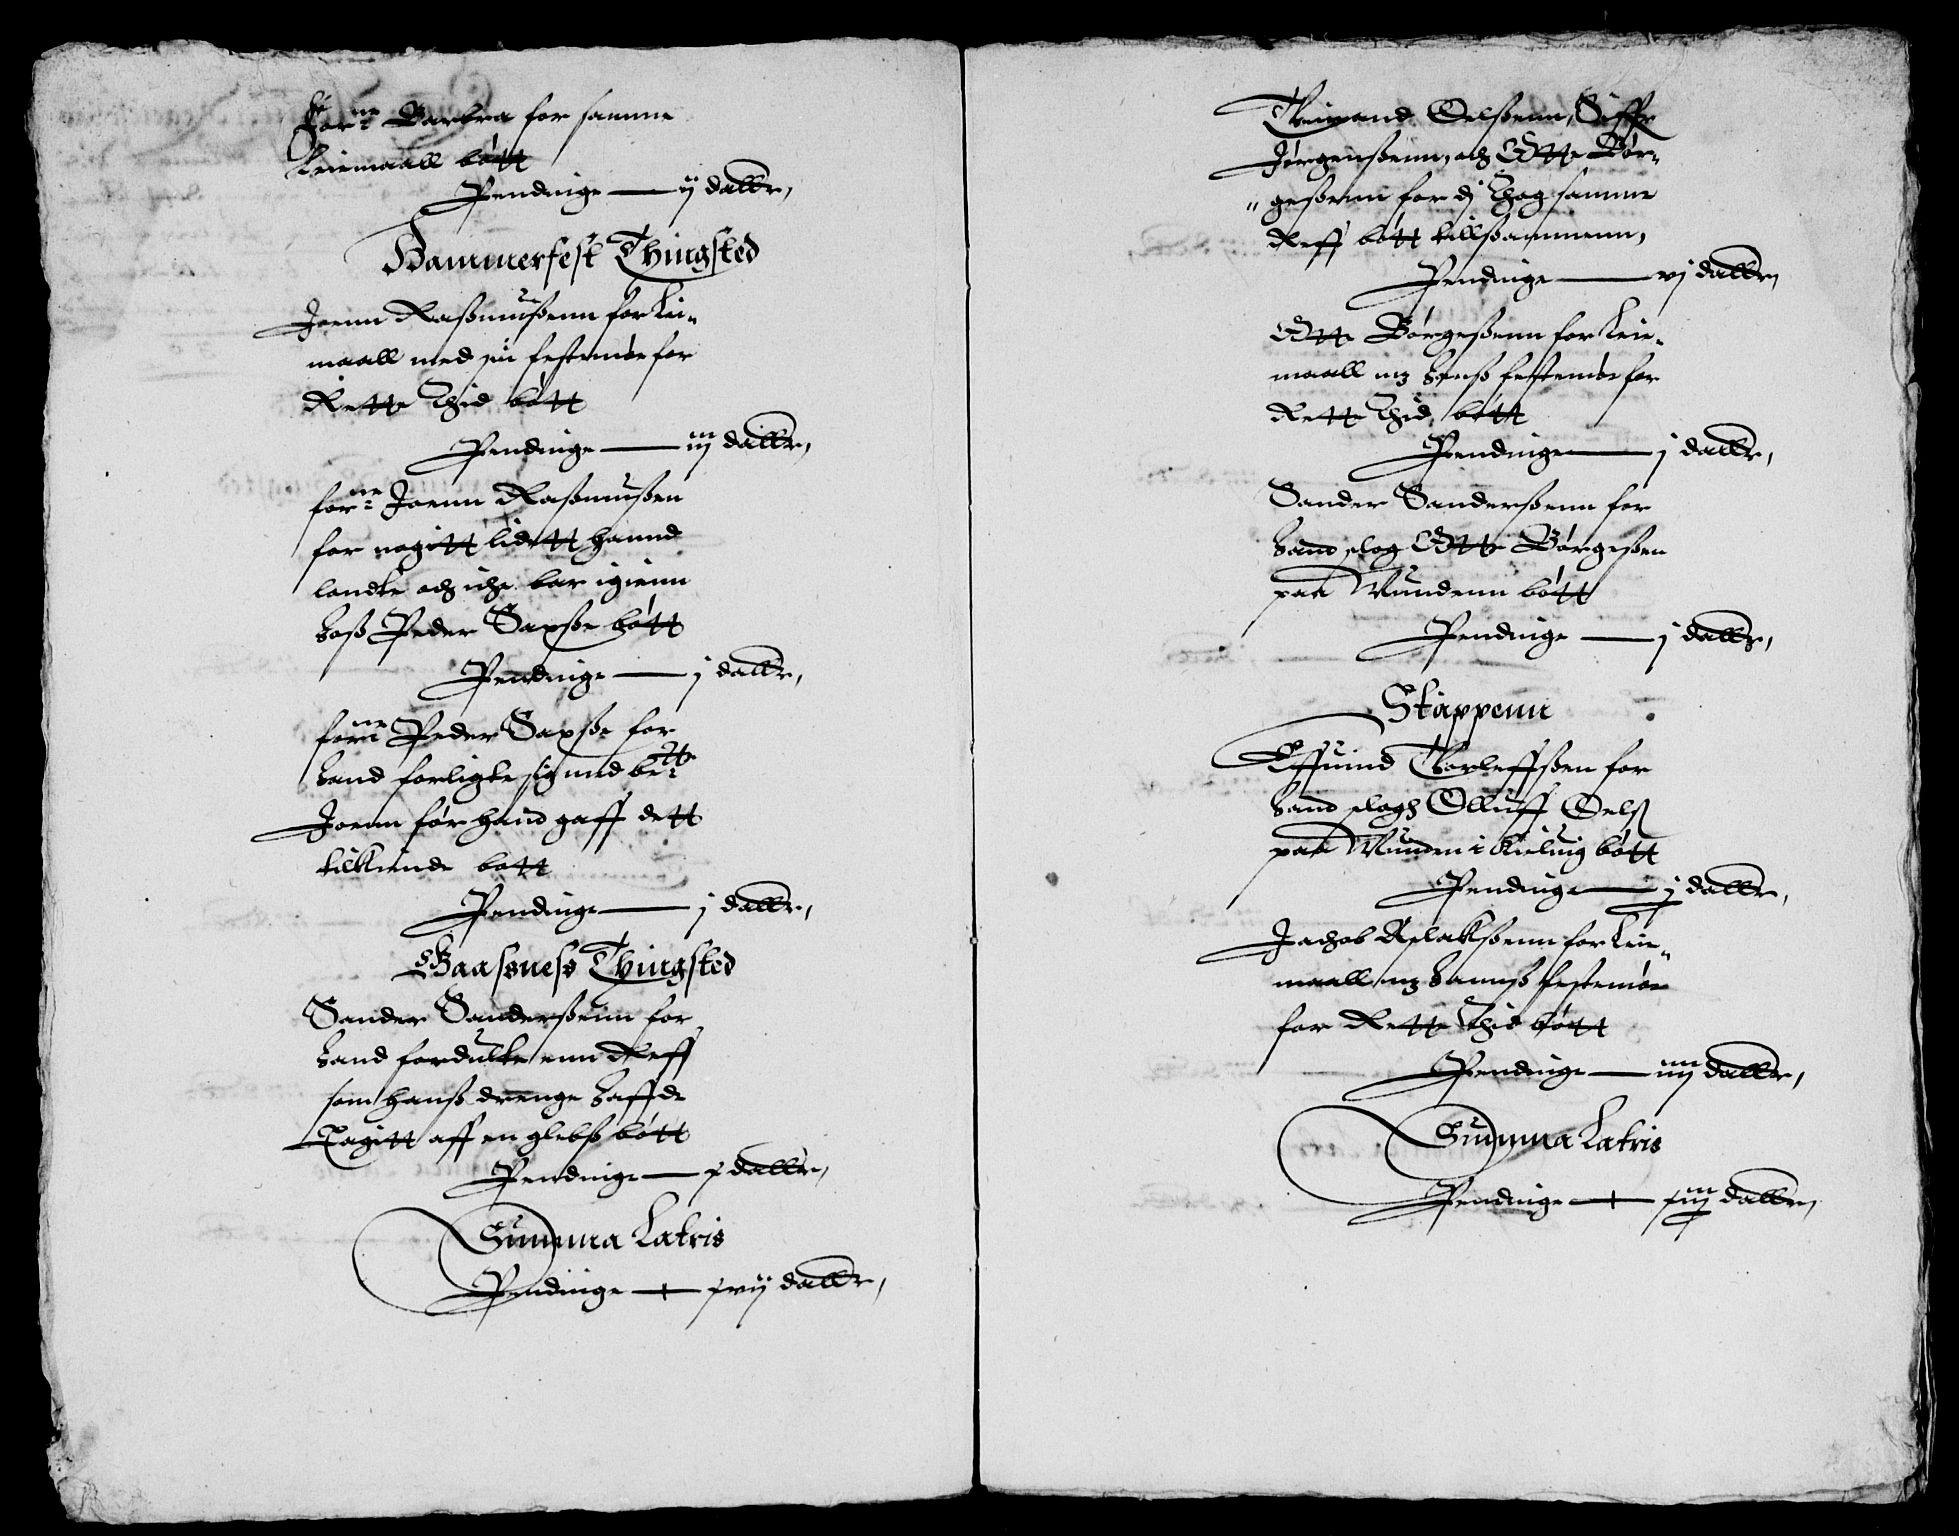 For:ne Barbra for samme
Leiermaall bøtt
Pendinge — ij daller,
Hammerfest Thingsted
Joenn Rasmusenn for Lei-
maall med sin festemøe for
Rette Thid bøtt
Pendinge — iij daller,
for:ne Joenn Rasmusen
for nogitt lidett hannd
landte och iche bar igienn
hoss Peder Saxsse bøtt
Pendinge — j daller,
for:ne Peder Saxsse for
hand forligte sig med be:te
Joenn før hand gaff dett
tilkiende bøtt
Pendinge — j daller,
Gaassness Thingsted
Sander Sandersenn for
hand fordulte enn Reff
som hans drenge haffde
Tagitt aff en glebss bøtt
Pendinge — x daller,
Summa Latris
Pendinge — xvij daller,
Oelssenn, Siffr
Jørgenssenn, och Otte Bør-
gessenn for dj Thog samme
Reff bøtt tillsammenn,
Pendinge — vj daller,
Otte Børgessenn for Leier-
maall mz hanss festemøe for
Rette Thid, bøtt
Pendinge — j daller,
Sander Sanderssenn for
hand slog Otte Børgessen
paa Mundenn bøtt
Pendinge — j daller,
Stappenn
Effuind Torleffssen for
hand slogh Olluff Oelss
paa Munden i Kieluig bøtt
Pendinge — j daller,
Jachob Aslakssenn for Leier-
maall mz hannss festemøe
for Rette Thid bøtt
Pendinge — iiij daller,
Summa Latris
Pendinge — xiij daller,